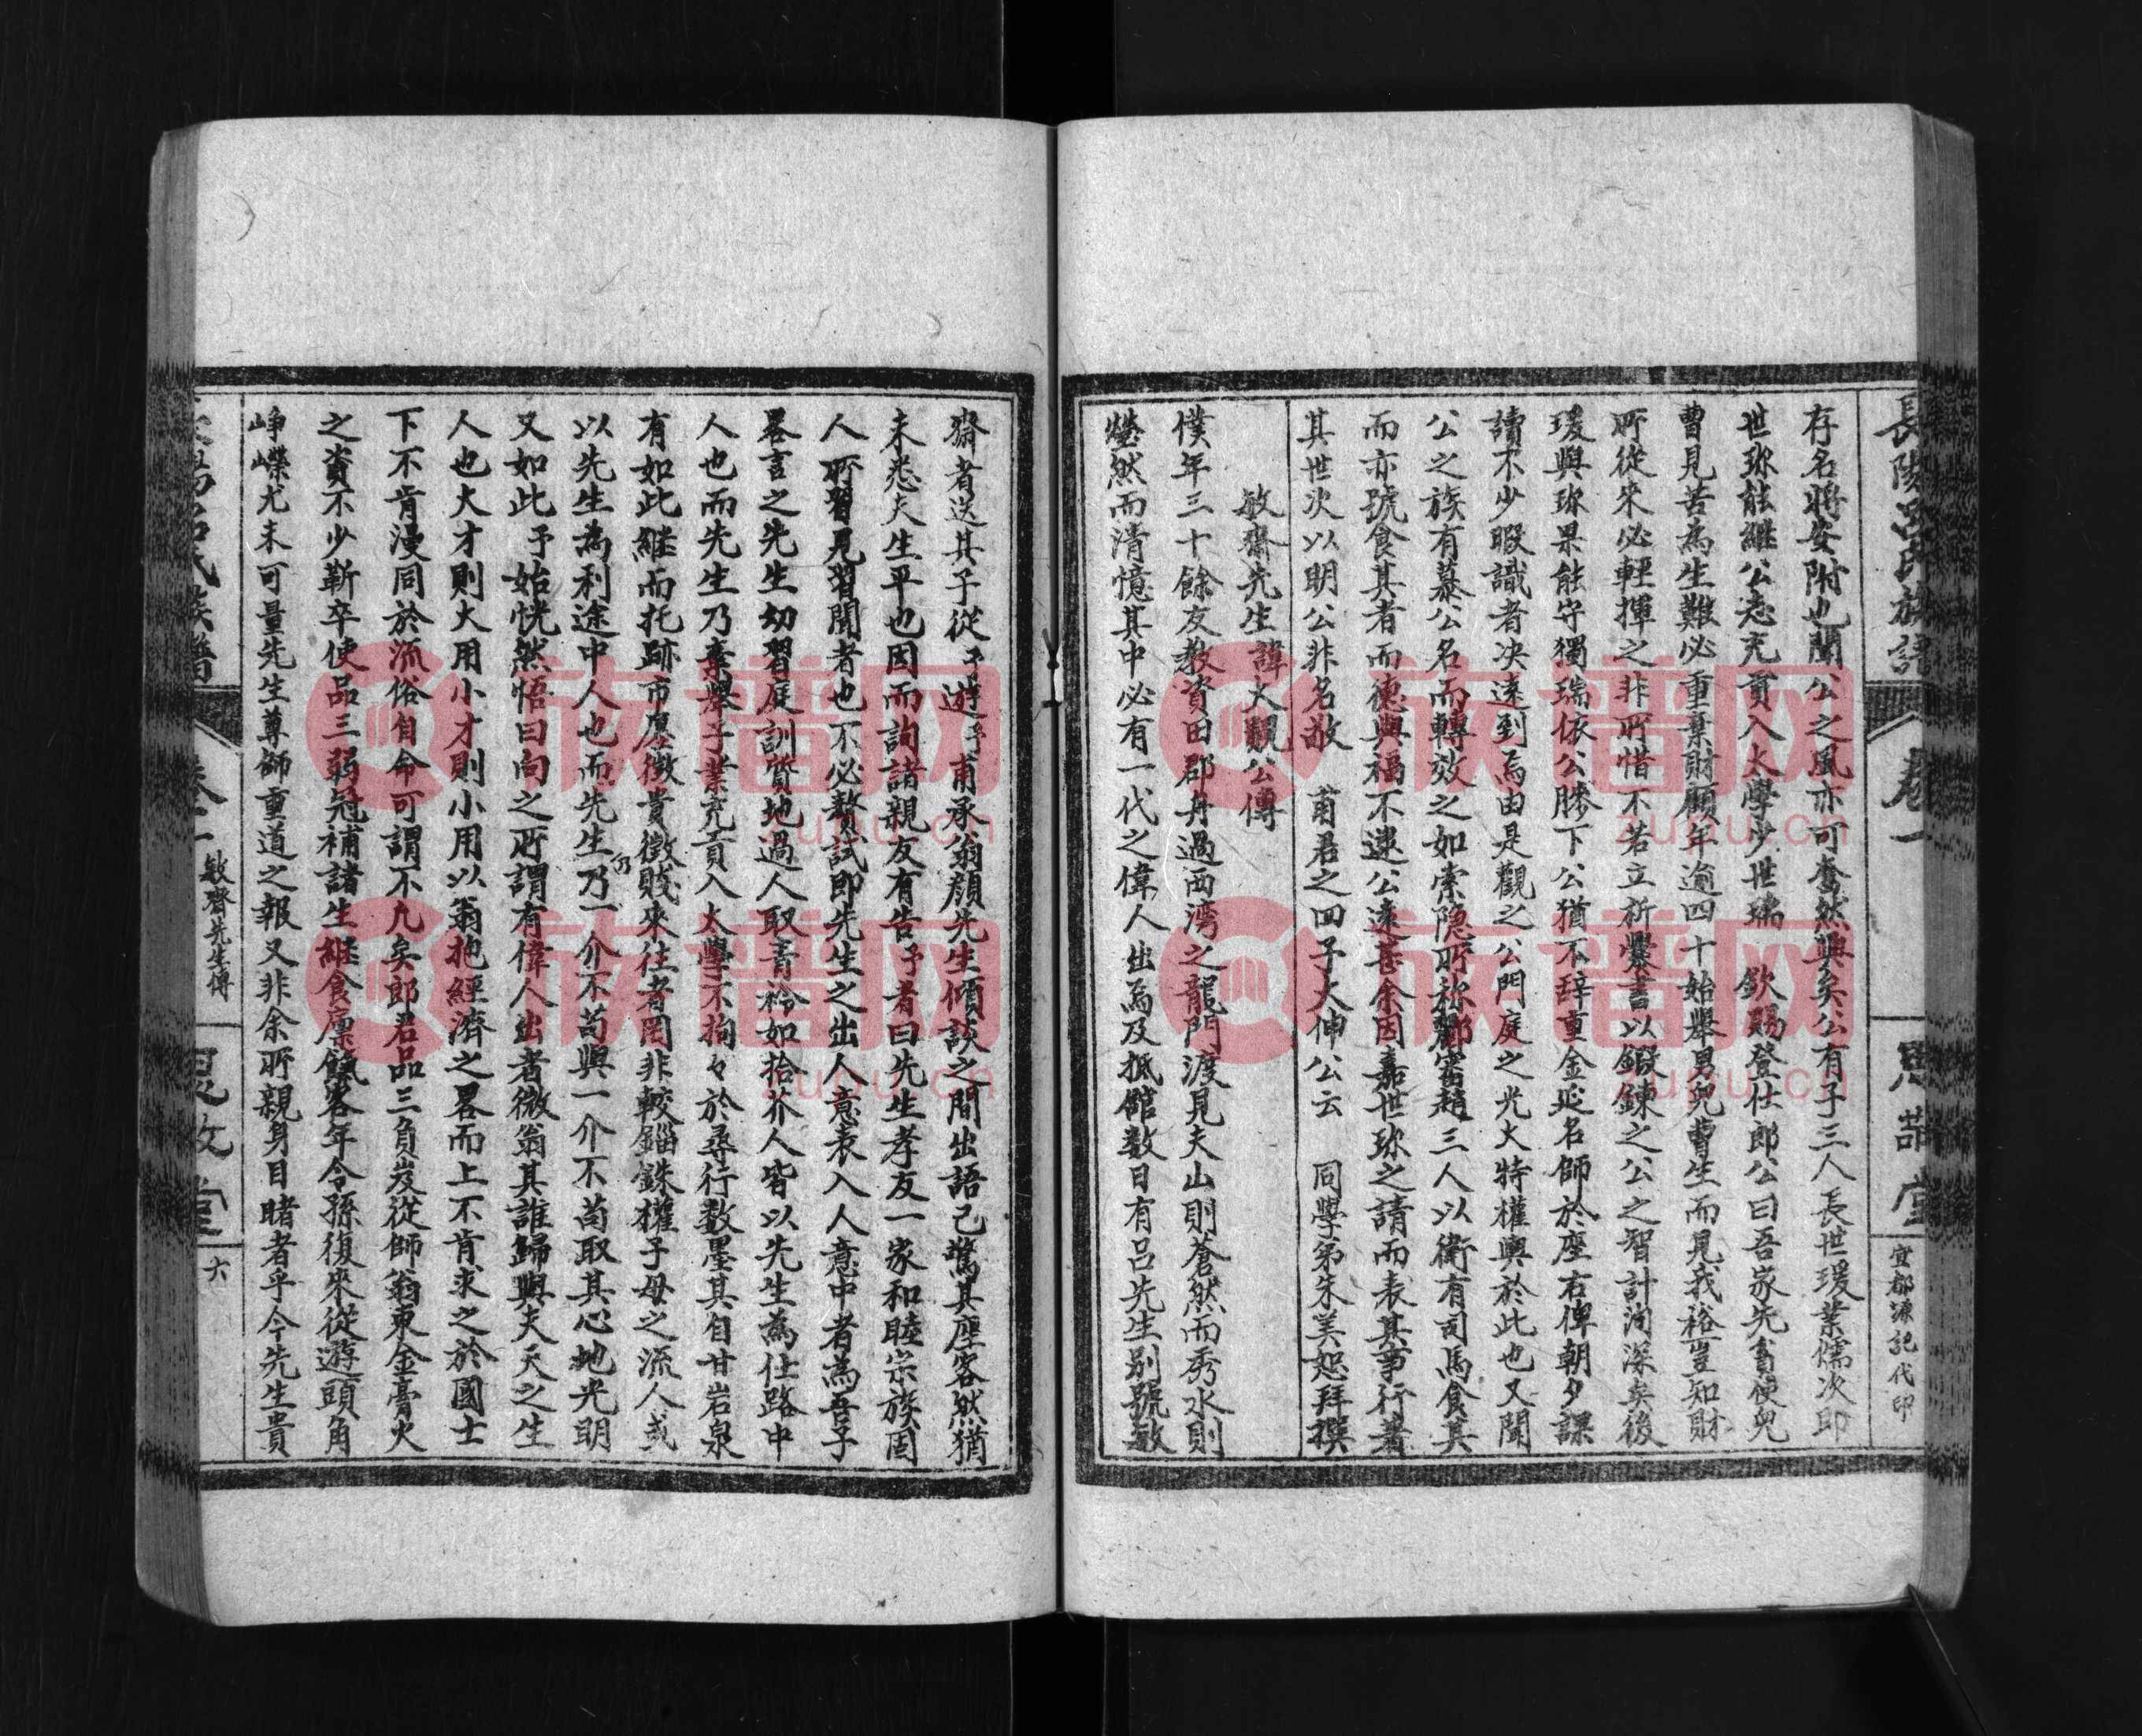 長陽呂氏族譜 卷一 思部堂 宜都源記代印
存名將安附也聞公之風亦可奮然興矣公有子三人長世瑗業儒次即
世珎能繼公志充貢入太學少世瑞 欽賜登仕郎公曰吾家先畜使兒
曹見苦為生難必重棄財顧年逾四十始舉男兒曹生而見我裕豈知財
所從來必輕揮之非所惜不若立祈爨書以鍛鍊之公之智計洵深矣後
瑗與珎果能守獨瑞依公膝下公猶不辞重金延名師於座右俾朝夕課
讀不少暇識者决遠到焉由是觀之公門庭之光大特權輿於此也又聞
公之族有慕公名而轉效之如索隐所称鄭審趙三人以衛有司馬食其
而亦號食其者而德與福不逮公遠甚余因嘉世珎之請而表其事行著
其世次以明公非名敬 莆君之四子大伸公云 同學弟朱美恕拜撰
敏齋先生諱大觀公傳
僕年三十餘友教資田郡舟過西湾之龍門渡見夫山則蒼然而秀水則
瑩然而清憶其中必有一代之偉人出焉及抵館数日有呂先生别號敏
齋者送其子從予遊予甫承翁顏先生傾談之間出語已驚其座客然猶
未悉夫生平也因而詢諸親友有告予者曰先生孝友一家和睦宗族固
人所習見習聞者也不必贅試即先生之出人意表入人意中者為吾子
畧言之先生幼習庭訓質地過人取青衿如拾芥人皆以先生為仕路中
人也而先生乃棄舉子業充貢入太學不拘々於尋行数墨其自甘岩泉
有如此継而托跡市廛徵貴徵賤來往者罔非較錙銖權子母之流人或
以先生為利途中人也而先生乃一介不苟與一介不苟取其心地光明
又如此予始恍然悟曰向之所謂有偉人出者微翁其誰歸與夫天之生
人也大才則大用小才則小用以翁抱經濟之畧而上不肯求之於國士
下不肯漫同於流俗自命可謂不凢矣郎君品三負岌從師翁東金膏火
之資不少靳卒使品三弱冠補諸生継食廪餼客年令孫復來從遊頭角
崢嶸尤未可量先生尊師重道之報又非余所親身目睹者乎今先生貴
氏族譜 卷一 敏齋先生傳 堂 六